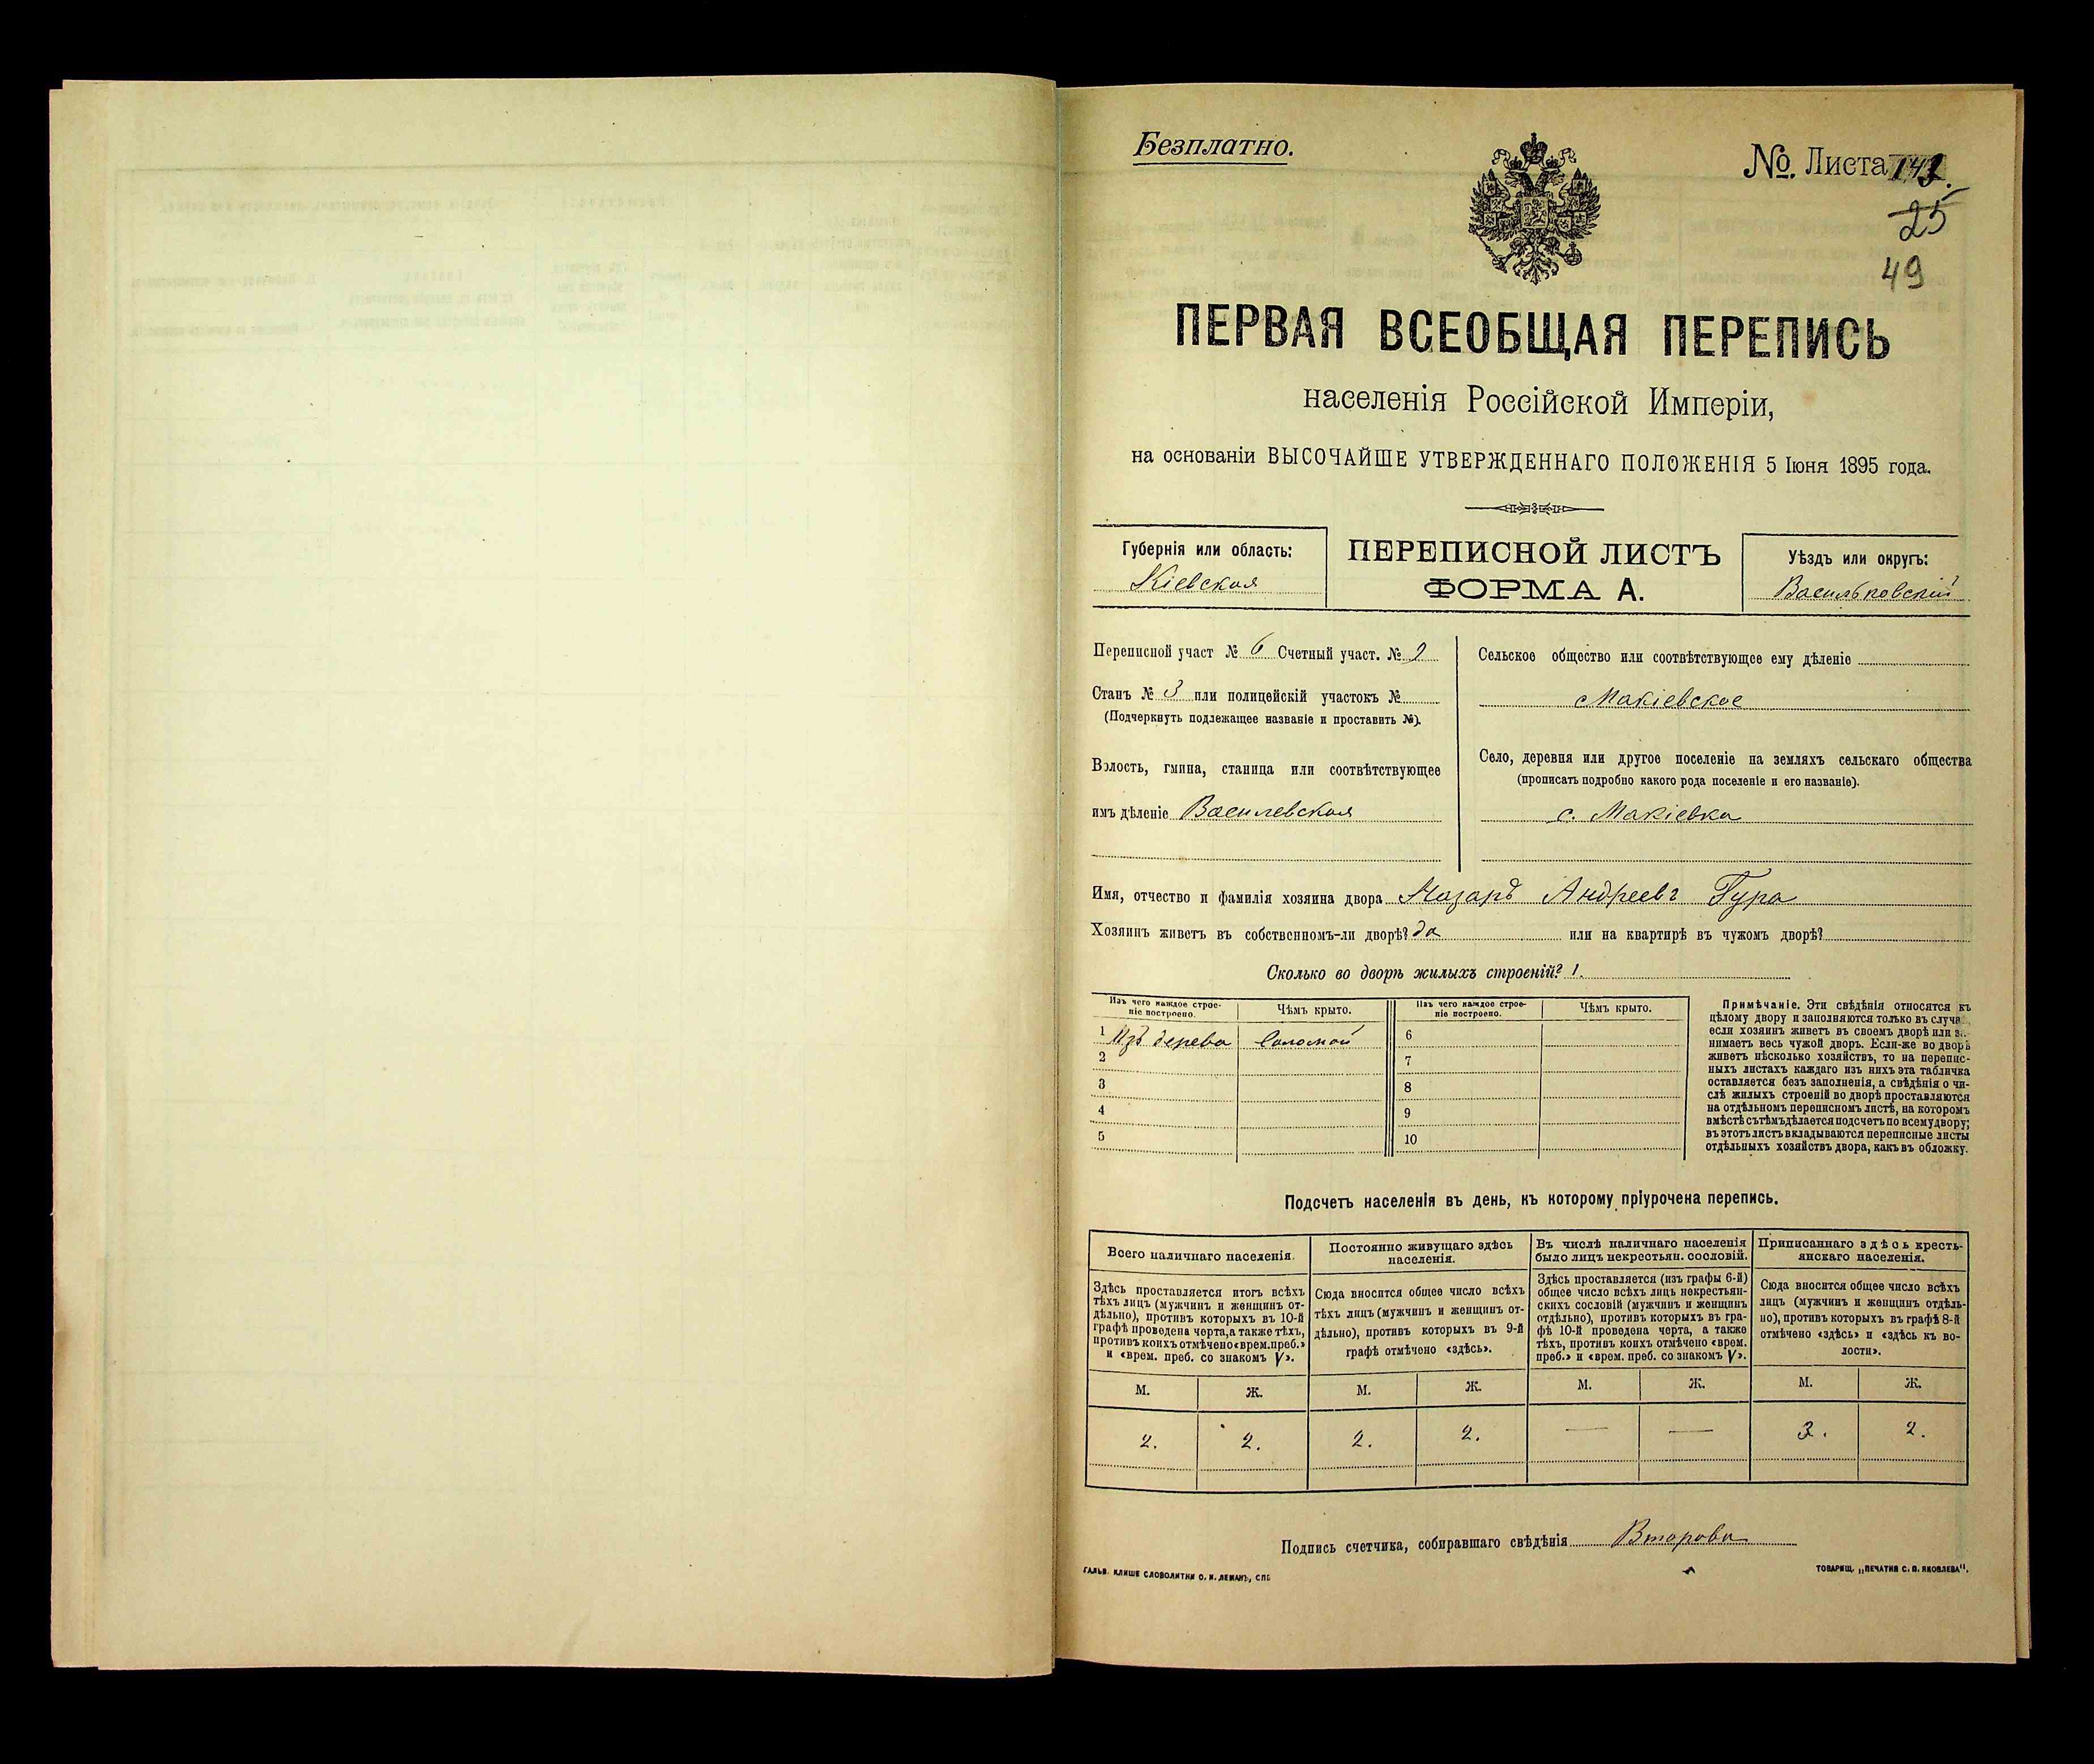 Безплатно.
№. Листа 143.
25
49
ПЕРВАЯ ВСЕОБЩАЯ ПЕРЕПИСЬ
населенія Россійской Имперіи,
на основаніи ВЫСОЧАЙШЕ УТВЕРЖДЕННАГО ПОЛОЖЕНІЯ 5 Іюня 1895 года.
Губернія или область:
Кіевская
ПЕРЕПИСНОЙ ЛИСТЪ
ФОРМА А.
Уѣздъ или округъ:
Васильковскій
Переписной участ № 6 Счетный участ. № 2
Станъ № 3 или полицейскій участокъ №
(Подчеркнуть подлежащее названіе и проставить №).
Волость, гмина, станица или соотвѣтствующее
имъ дѣленіе Василевская
Сельское общество или соотвѣтствующее ему дѣленіе
Макіевское
Село, деревня или другое поселеніе на земляхъ сельскаго общества
(прописать подробно какого рода поселеніе и его названіе).
с. Макіевка
Имя, отчество и фамилія хозяина двора Назаръ Андреевъ Гура
Хозяинъ живетъ въ собственномъ-ли дворѣ? да или на квартирѣ въ чужомъ дворѣ?
Сколько во дворѣ жилыхъ строеній? 1.
Изъ чего каждое строе-
ніе построено.
Чѣмъ крыто.
1 Изъ дерева Соломой
2
3
4
5
Изъ чего каждое строе-
ніе построено.
Чѣмъ крыто.
6
7
8
9
10
Примѣчаніе. Эти свѣдѣнія относятся къ
цѣлому двору и заполняются только въ случаѣ,
если хозяинъ живетъ въ своемъ дворѣ или за-
нимаетъ весь чужой дворъ. Если-же во дворѣ
живетъ нѣсколько хозяйствъ, то на перепис-
ныхъ листахъ каждаго изъ нихъ эта табличка
оставляется безъ заполненія, а свѣдѣнія о чи-
слѣ жилыхъ строеній во дворѣ проставляются
на отдѣльномъ переписномъ листѣ, на которомъ
вмѣстѣ съ тѣмъ дѣлается подсчетъ по всему двору;
въ этотъ листъ вкладываются переписные листы
отдѣльныхъ хозяйствъ двора, какъ въ обложку.
Подсчетъ населенія въ день, къ которому пріурочена перепись.
Всего наличнаго населенія.
Здѣсь проставляется итогъ всѣхъ
тѣхъ лицъ (мужчинъ и женщинъ от-
дѣльно), противъ которыхъ въ 10-й
графѣ проведена черта, а также тѣхъ,
противъ коихъ отмѣчено «врем. преб.»
и «врем. преб. со знакомъ V».
Постоянно живущаго здѣсь
населенія.
Сюда вносится общее число всѣхъ
тѣхъ лицъ (мужчинъ и женщинъ от-
дѣльно), противъ которыхъ въ 9-й
графѣ отмѣчено «здѣсь».
Въ числѣ наличнаго населенія
было лицъ некрестьян. сословій.
Здѣсь проставляется (изъ графы 6-й)
общее число всѣхъ лицъ некрестьян-
скихъ сословій (мужчинъ и женщинъ
отдѣльно), противъ которыхъ въ гра-
фѣ 10-й проведена черта, а также
тѣхъ, противъ коихъ отмѣчено «врем.
преб.» и «врем. преб. со знакомъ V».
Приписаннаго здѣсь кресть-
янскаго населенія.
Сюда вносится общее число всѣхъ
лицъ (мужчинъ и женщинъ отдѣль-
но), противъ которыхъ въ графѣ 8-й
отмѣчено «здѣсь» и «здѣсь къ во-
лости».
М. Ж. М. Ж. М. Ж. М. Ж.
2. 2. 2. 2. — — 3. 2.
Подпись счетчика, собиравшаго свѣдѣнія
ГАЛЬВ. КЛИШЕ СЛОВОЛИТНИ О. И. ЛЕМАНЪ, СПБ
ТОВАРИЩ. „ПЕЧАТНЯ С. П. ЯКОВЛЕВА".